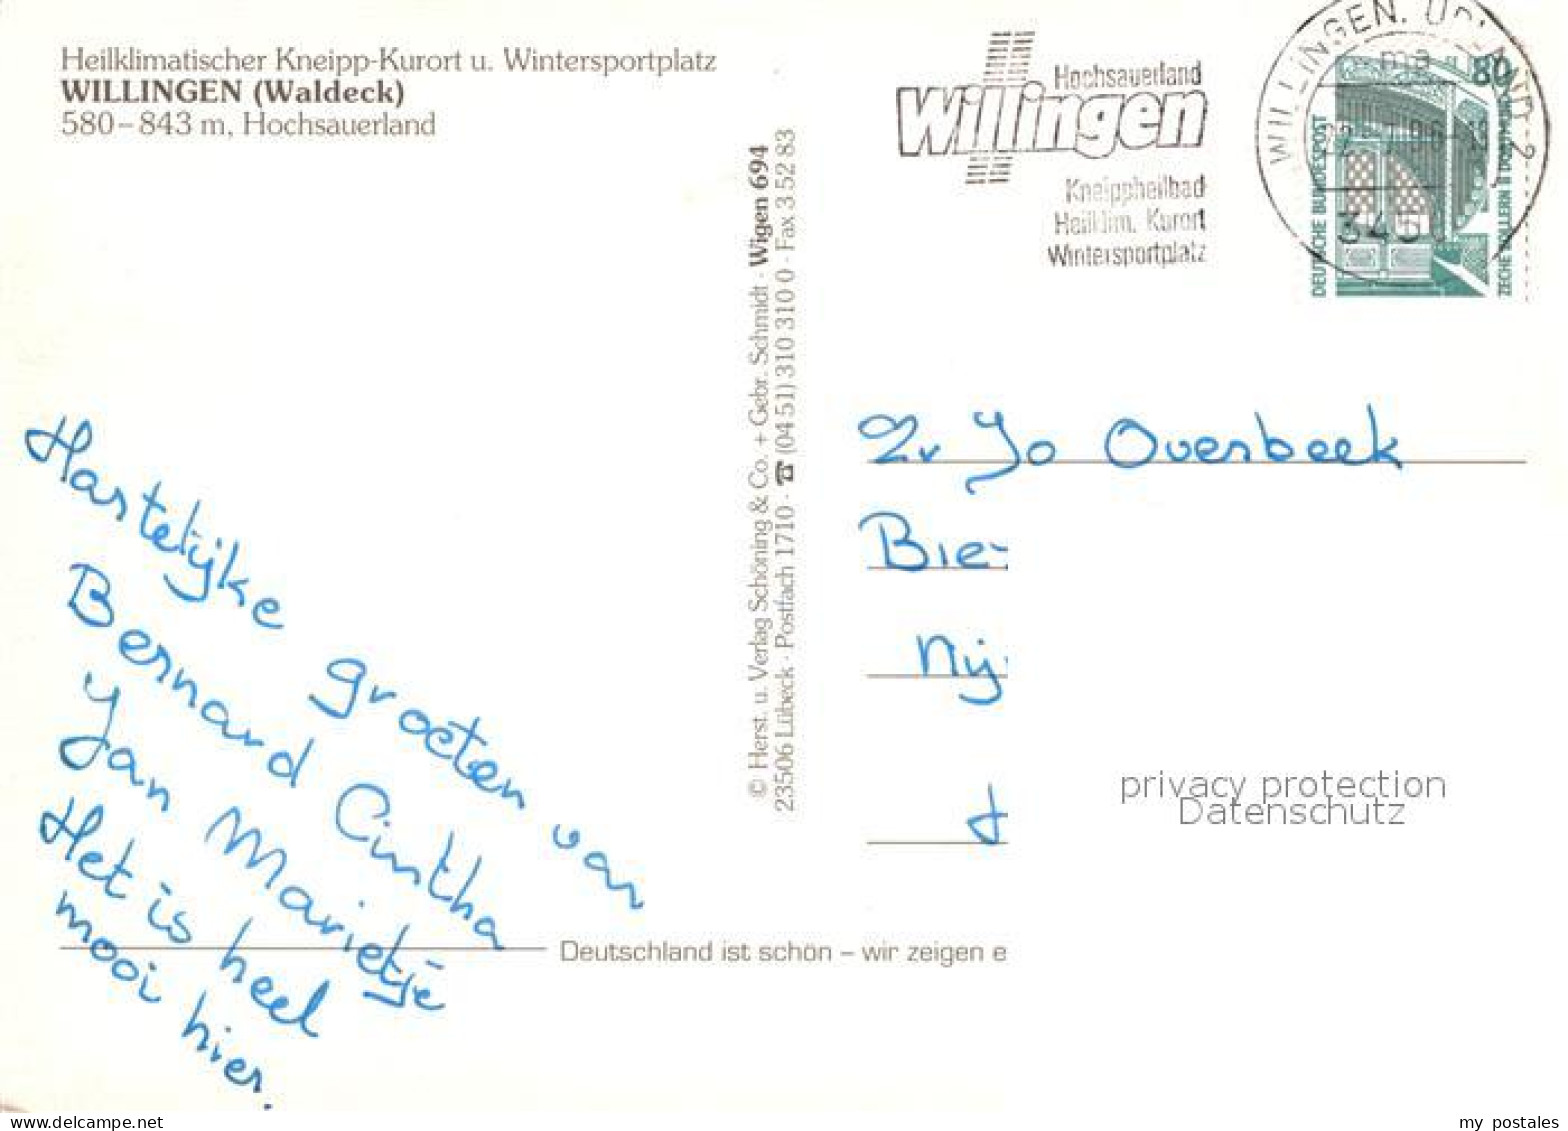 Heilklimatischer Kneipp-Kurort u. Wintersportplatz
WILLINGEN (Waldeck)
580–843 m, Hochsauerland
Hochsauerland
Willingen
Kneippheilbad
Heilklim. Kurort
Wintersportplatz
WILLINGEN, UPLAND 2
ma
345
80
DEUTSCHE BUNDESPOST
ZECHE ZOLLERN II DORTMUND
© Herst. u. Verlag Schöning & Co. + Gebr. Schmidt · Wigen 694
23506 Lübeck · Postfach 1710 · ☎ (04 51) 310 310 0 · Fax 3 52 83
Hartelijke groeten van
Bernard Cintha
Jan Marietje
Het is heel
mooi hier.
Zr Jo Overbeek
Bie
Nij
Deutschland ist schön – wir zeigen e
privacy protection
Datenschutz
www.delcampe.net
my postales